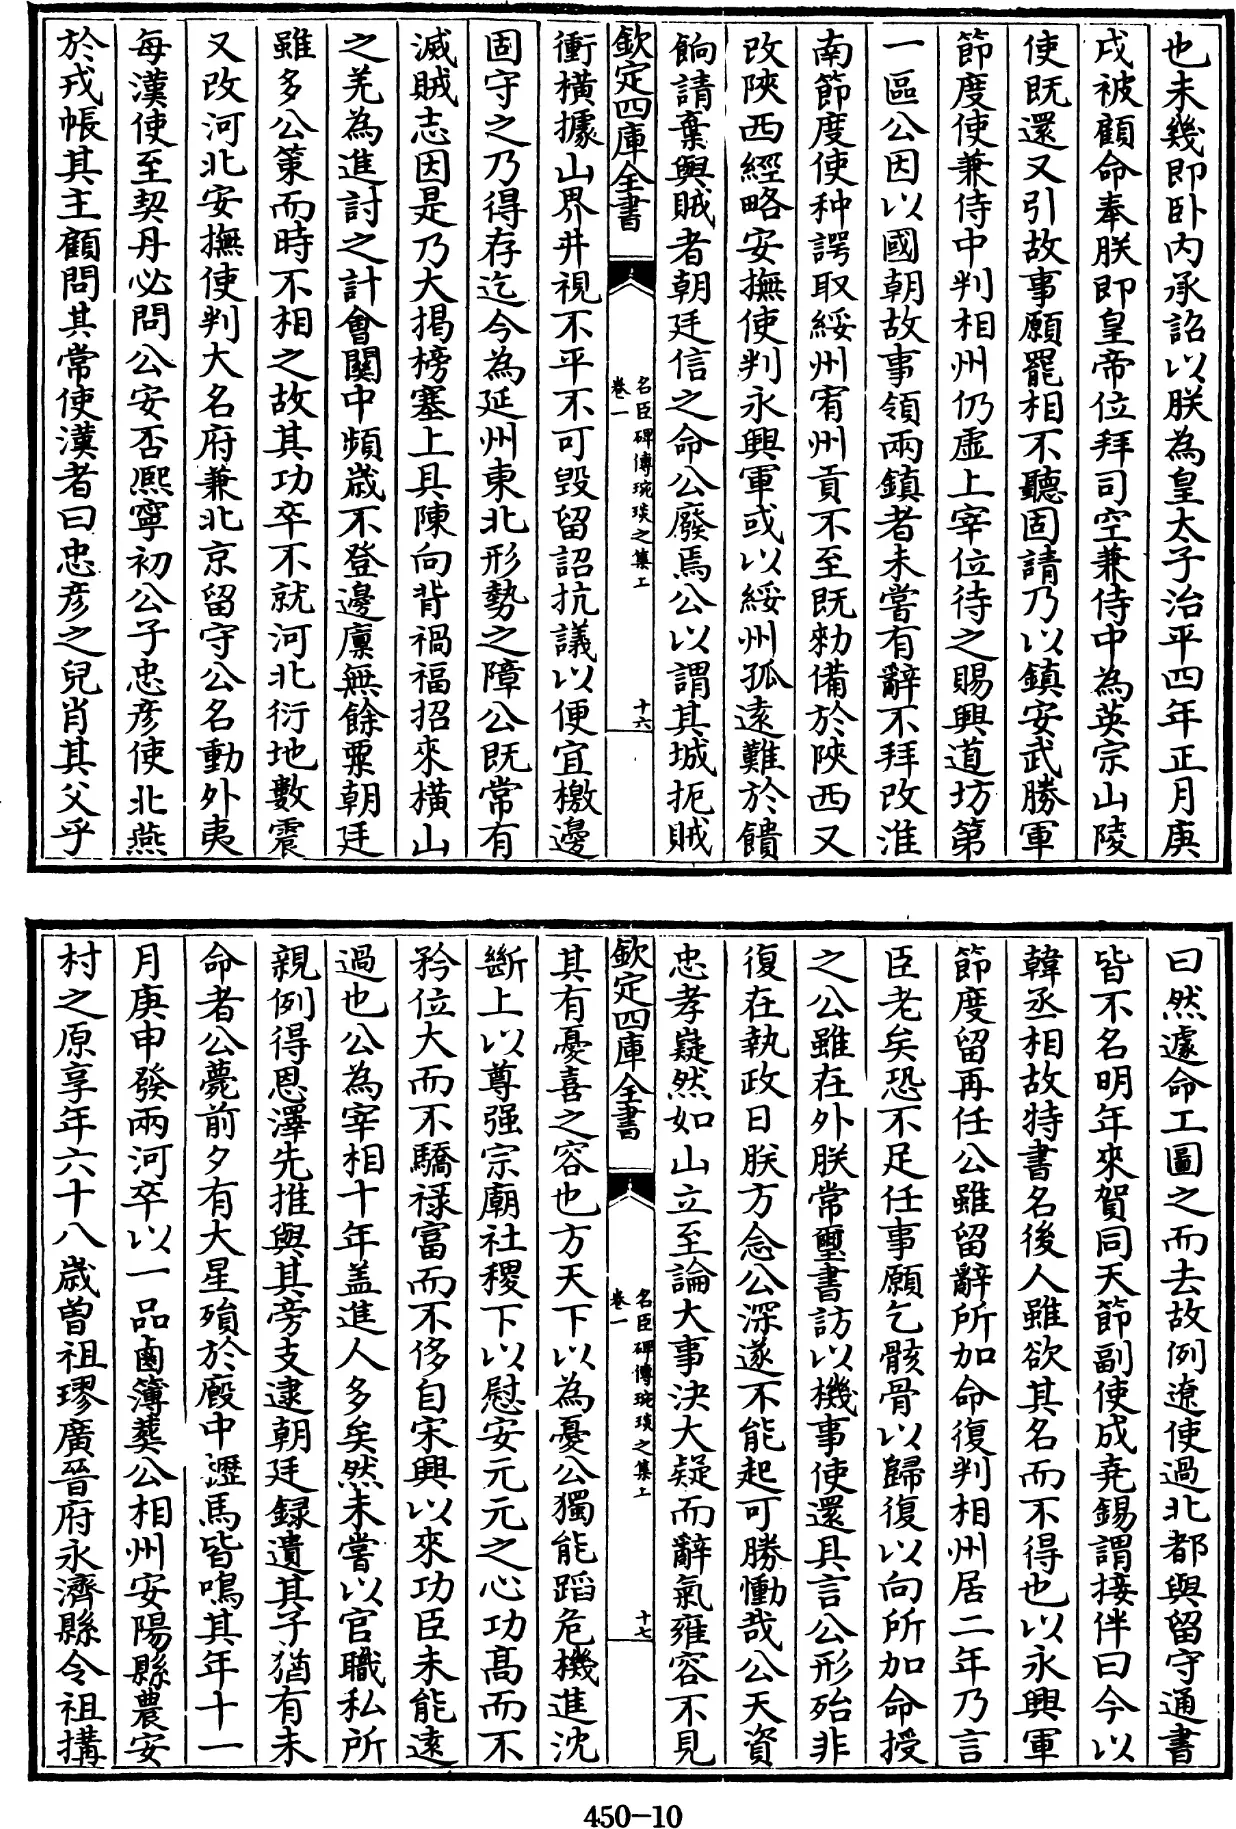 也未幾即卧内承詔以朕為皇太子治平四年正月庚
戌被顧命奉朕即皇帝位拜司空兼侍中為英宗山陵
使既還又引故事願罷相不聽固請乃以鎮安武勝軍
節度使兼侍中判相州仍虛上宰位待之賜興道坊第
一區公因以國朝故事領兩鎮者未嘗有辭不拜改淮
南節度使种諤取綏州宥州貢不至既勑備於陜西又
改陜西經略安撫使判永興軍或以綏州孤遠難於饋
餉請棄與賊者朝廷信之命公廢焉公以謂其城扼賊
欽定四庫全書
名臣碑傳琬琰之集上
卷一
十六
衝橫據山界井視不平不可毀留詔抗議以便宜檄邊
固守之乃得存迄今為延州東北形勢之障公既常有
滅賊志因是乃大揭榜塞上具陳向背禍福招來橫山
之羌為進討之計會關中頻歲不登邊廩無餘粟朝廷
雖多公策而時不相之故其功卒不就河北衍地數震
又改河北安撫使判大名府兼北京留守公名動外夷
每漢使至契丹必問公安否熙寧初公子忠彦使北燕
於戎帳其主顧問其常使漢者曰忠彦之兒肖其父乎
曰然遽命工圖之而去故例遼使過北都與留守通書
皆不名明年來賀同天節副使成堯錫謂接伴曰今以
韓丞相故特書名後人雖欲其名而不得也以永興軍
節度留再任公雖留辭所加命復判相州居二年乃言
臣老矣恐不足任事願乞骸骨以歸復以向所加命授
之公雖在外朕常璽書訪以機事使還具言公形殆非
復在執政日朕方念公深遂不能起可勝慟哉公天資
忠孝嶷然如山立至論大事決大疑而辭氣雍容不見
欽定四庫全書
名臣碑傳琬琰之集上
卷一
十七
其有憂喜之容也方天下以為憂公獨能蹈危機進沈
斷上以尊强宗廟社稷下以慰安元元之心功髙而不
矜位大而不驕禄富而不侈自宋興以來功臣未能遠
過也公為宰相十年盖進人多矣然未嘗以官職私所
親例得恩澤先推與其旁支逮朝廷録遺其子猶有未
命者公薨前夕有大星殞於廏中櫪馬皆鳴其年十一
月庚申發兩河卒以一品鹵簿葬公相州安陽縣農安
村之原享年六十八歲曽祖璆廣晉府永濟縣令祖搆
450-10